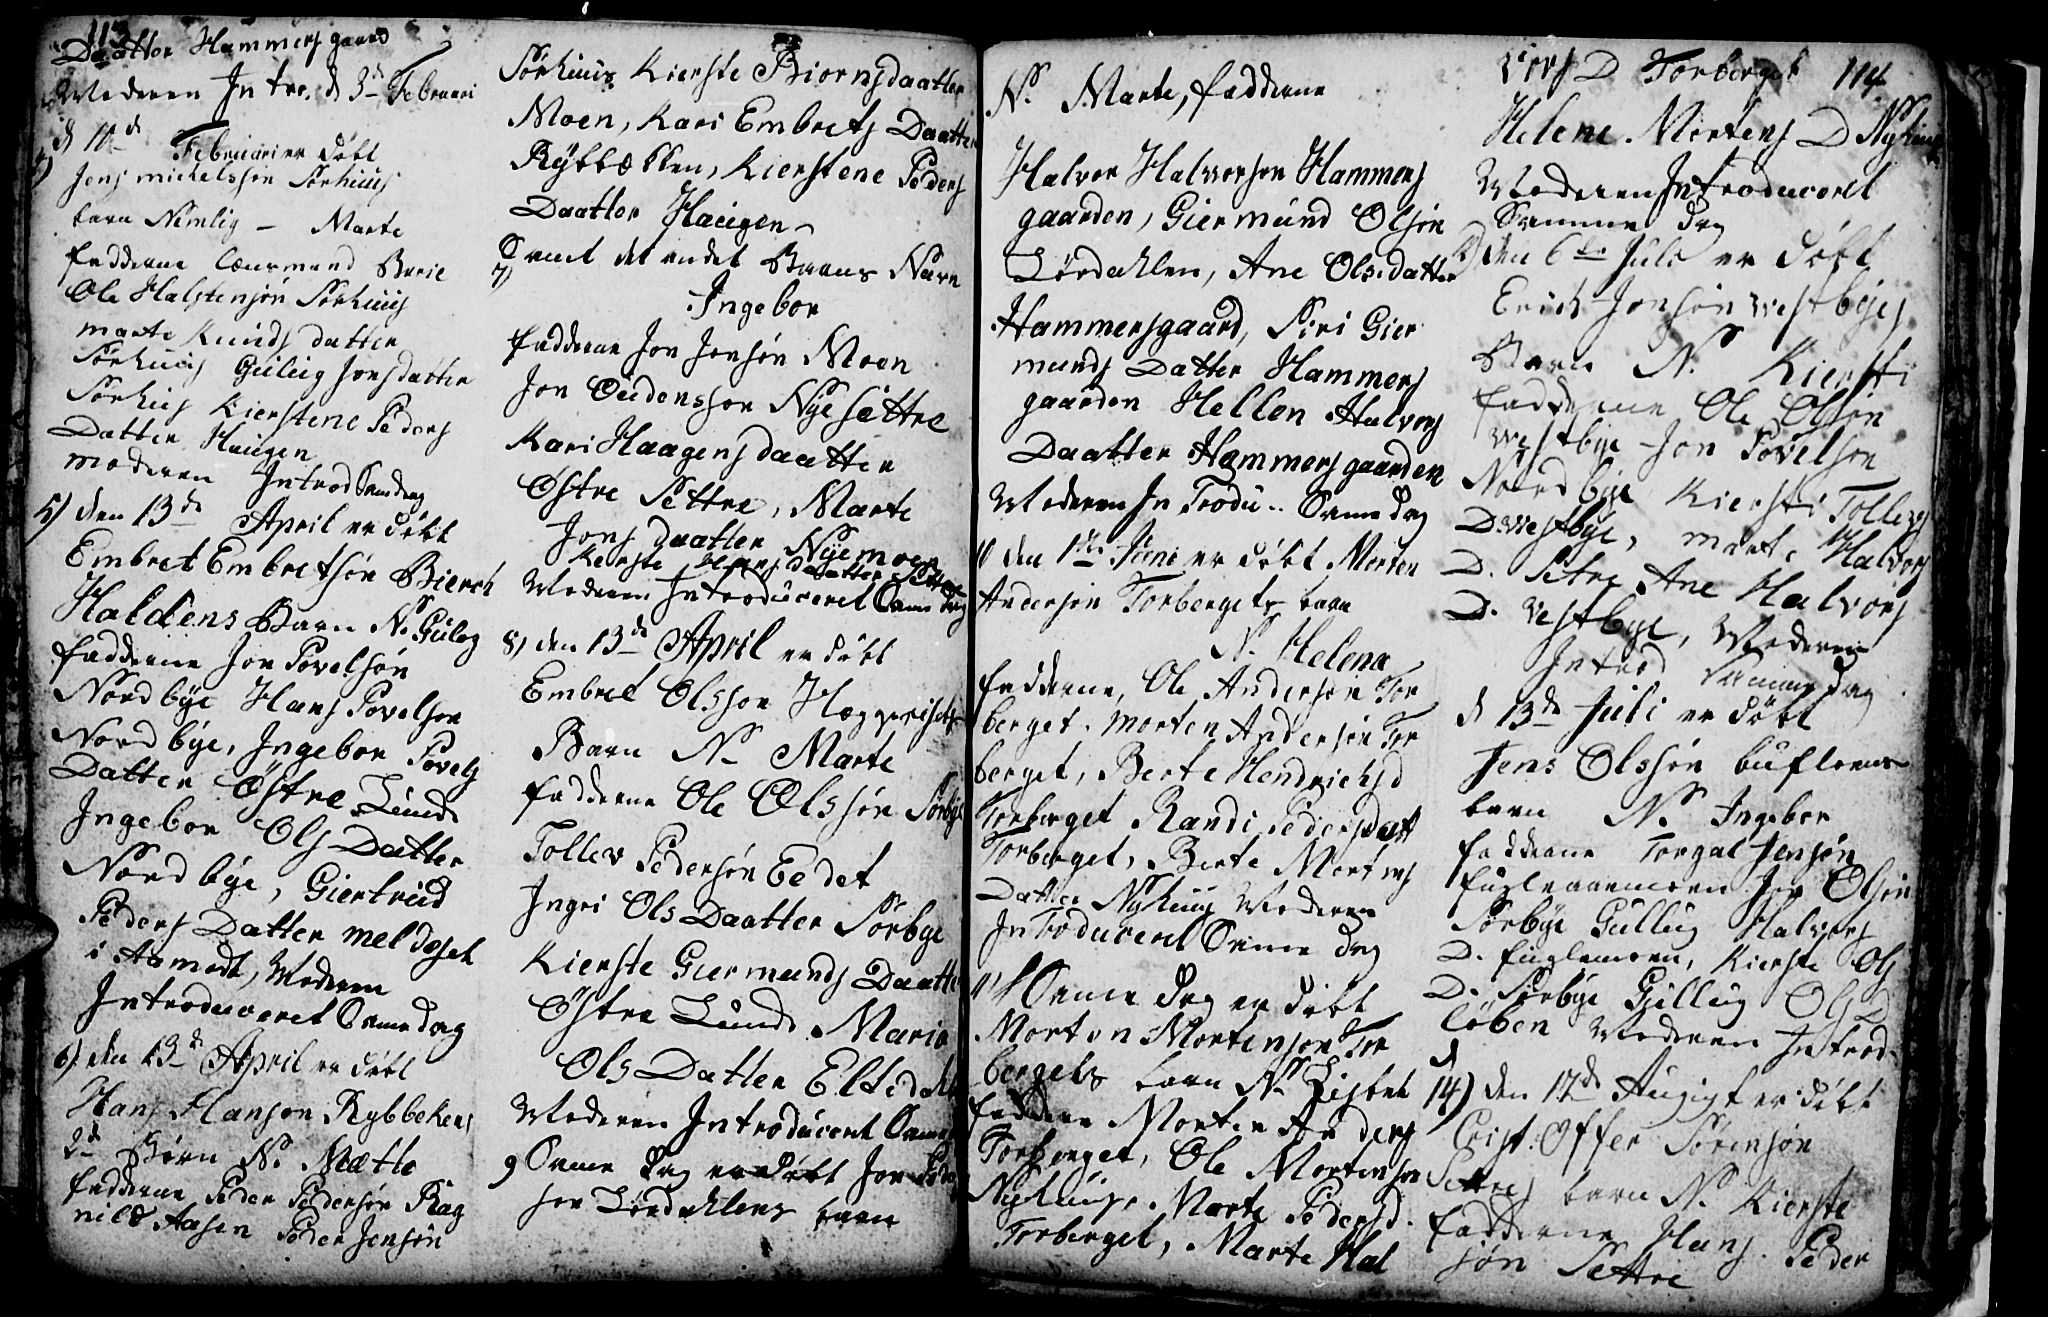 113
Daatter Hammersgaard
Moderen Intro. d 3de Februari
4) d 10de Februari er döbt
Jens michelssön Sörhuus
barn Nemlig - Marte
fadderne Lensmand Berie
Ole Halstensön Sörhuus
marte Knuds datter
Sörhuus Gulug Jonsdatter
Sörhus Kierstene Peders
Datter Haugen
moderen Introd Samdag
5) den 13de April er döbt
Embret Embretsön Bierch
Haldens Barn N. Guleg
fadderne Jon Povelsön
Nordbÿe Hans Povelsön
Nordbÿe, Ingebor Povels
Datter Östre Lund
Ingebor Ols Datter
Nordbÿe, Giertrud
Peders Datter meldeset
i Aamodt, Moderen
Introduceret Samedag
6) den 13de April er döbt
Hans Hanson Rybbekens
2de Börn N. Mætte
fadderne Peder Pedersön Rag
nild Aasen Peder Jensön
Sörhuus Kierste Biornsdaatter
Moen, Kari Embrets Daatter
Rybbekken, Kierstene Peders
Daatter Haugen
7) Samt det andet Barns Navn
Ingebor
fadderne Jon Jonsön Moen
Jon Oudensson Nysettre
Kari Haagensdaatter
Östre Settre, Marte
Jons daatter Nyemoen
Kerste daatter
Moderen Introduceret Samedag
8) den 13de April er döbt
Embret Olsson Heggeriset
Barn N. Marte
fadderne Ole Olssön Sörbye
Tollev Pedersön Eedet
Ingri Ols Daatter Sörbye
Kierste Giermunds Daatter
Östre Lund, Maria
Ols Datter Eltedalen
Moderen Introduceret Same
9 Same dag er döbt Jon
sön Lördahlens barn
N. Marte, fadderne
Halvor Halvorson Hammers
gaarden, Giermund Olsön
Lördahlen, Ane Olsdatter
Hammersgaard, Siri Gier
munds Datter Hammers
gaarden Hellen Halvors
Daatter Hammersgaarden
Moderen Introdu.. Samedag
10 den 1ste Juni er döbt Morten
Andersön Torbergets barn
N. Helena
fadderne, Ole Andersön Tor
berget. Morten Andersön Tor
berget, Berte Hendrichsd
Torberget Randi Pedersdatt
Torberget, Berte Mortens
Datter Nyhuus Moderen
Introduceret Same dag
11) Same dag er döbt
Morten Mortenson Tor
bergets barn N. Lisbet
faddere Morten Anders
Torberget, Ole Mortensön
Nyhuus, Marte Pedersd.
Torberget, Marte Hal
vors D Torberget 114
Helene Mortens D Nyhuus
Moderen Introduceret
Samme dag
den 6te Juli er döbt
Erich Jonsön vestbÿes
Barn N. Kiersti
fadderne Ole Olsön
vestbye Jon Povelson
Nordbÿe Kiersti Tollevs
D. vestbÿe, marte Halvors
D. Setre Ane Halvors
D. vestbye, Moderen
Introd Samme dag
d 13de Juli er döbt
Jens Olssön
barn N. Ingebor
fadderne Torgal Jensön
fuglenaemoen Jon Olsön
Sörbÿe Gullug Halvors
D. fuglemoen, Kierste Ols
D. Sörbÿe Gullug Ols D
löben Moderen Introd.
d
14) den 17de August er döbt
Crist.offer Sörensön
Settres barn N. Kierste
fadderne Hans Peder
sön Settre